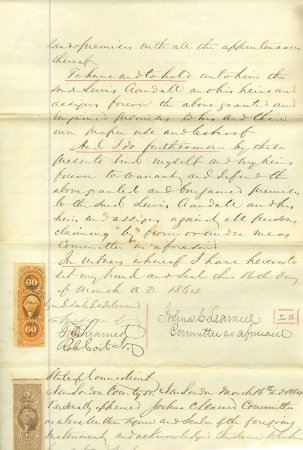 land & premises with all the appurtenances
thereof
To have and to hold unto him the
said Lewis Crandall and his heirs and
assigns forever the above granted and
bargained premises to his and their
own proper use and behoof.
And I do furthermore by these
presents bind myself and my heirs
forever to warrant and defend the
above granted and bargained premises
to the said Lewis Crandall and his
heirs and assigns against all persons
claiming by from or under me as
Committee as aforesaid
In witness whereof I have hereunto
set my hand and seal this 16th day
of March A.D. 1864
Joshua C Learned
L.S.
Committee as aforesaid
Learned
Rob Coit Jr
60
60
State of Connecticut
New London County ss. New London March 16th A.D. 1864
Personally appeared Joshua C Learned Committee
as above written signer and sealer of the foregoing
instrument and acknowledged the same to be his